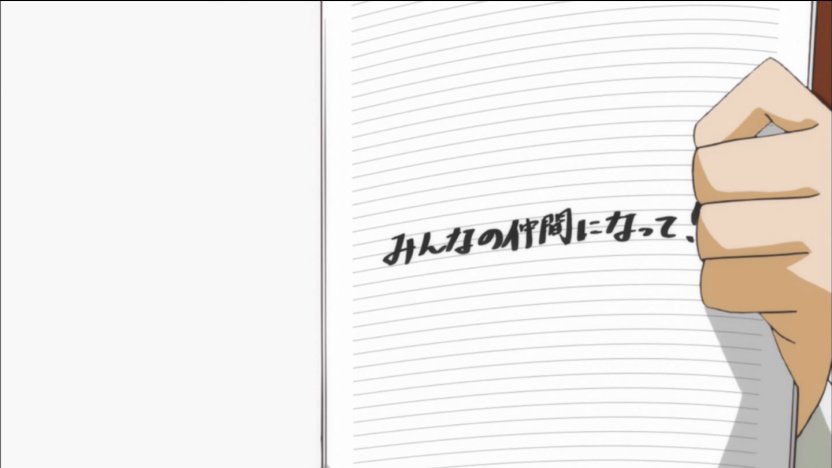 みんなの仲間になって!